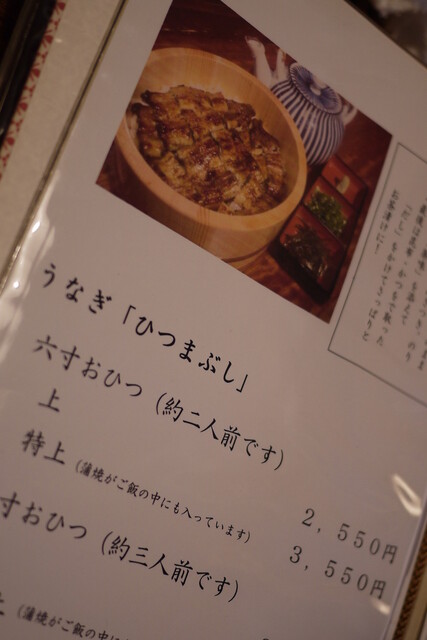 を添えて
「だし」をかけてさっぱりと
お茶漬けに！
うなぎ「ひつまぶし」
六寸おひつ（約二人前です）
上 2，550円
特上（蒲焼がご飯の中にも入っています） 3，550円
寸おひつ（約三人前です）
上（蒲焼がご飯の中に